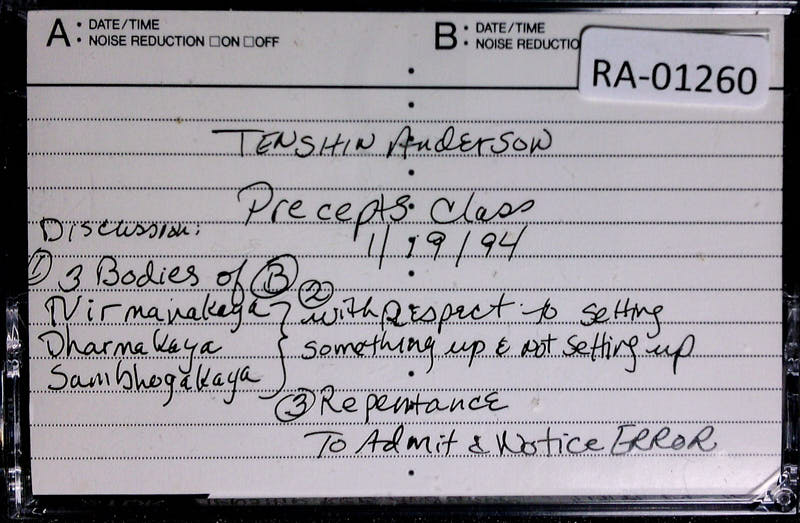 A • DATE/TIME
• NOISE REDUCTION □ON □OFF
B • DATE/TIME
• NOISE REDUCTIO
RA-01260
TENSHIN AndERSON
Precepts Class
1/19/94
Discussion:
① 3 Bodies of Ⓑ
Nirmanakaya
Dharmakaya
Sambhogakaya
② with respect to setting
something up & not setting up
③ Repentance
To Admit & Notice ERROR